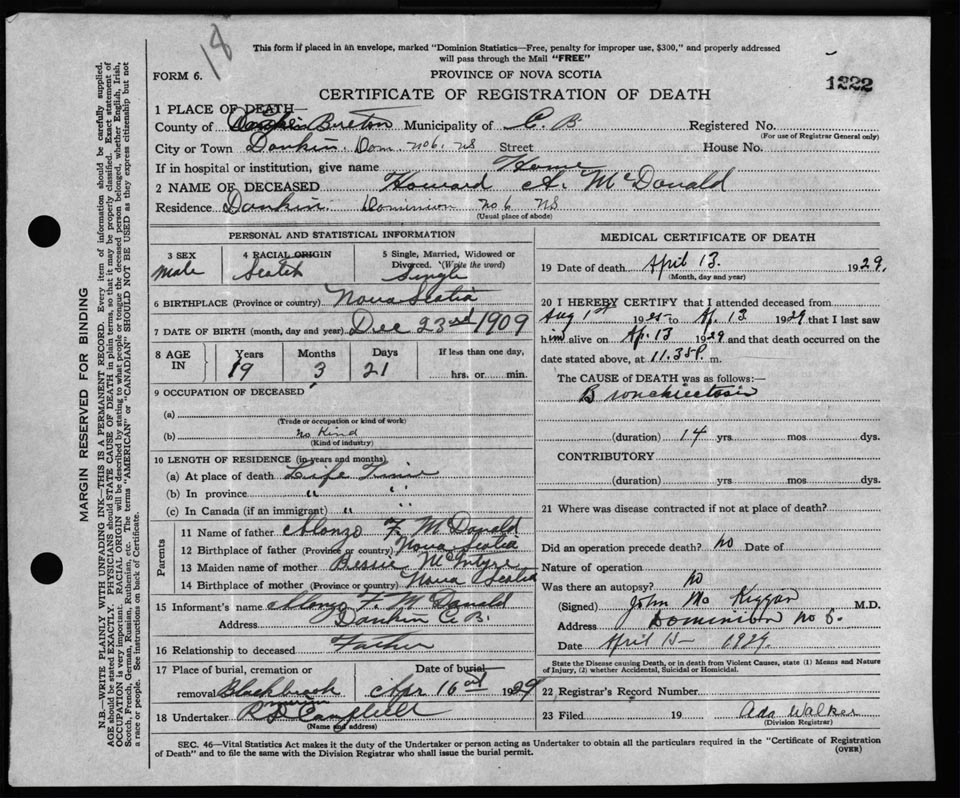 18
This form if placed in an envelope, marked "Dominion Statistics—Free, penalty for improper use, $300," and properly addressed
will pass through the Mail "FREE"
FORM 6.
PROVINCE OF NOVA SCOTIA
1222
CERTIFICATE OF REGISTRATION OF DEATH
1 PLACE OF DEATH—
County of Breton Municipality of C. B Registered No.
(For use of Registrar General only)
City or Town Donkin Dom. No 6. NS Street House No.
If in hospital or institution, give name Home
2 NAME OF DECEASED Howard A. McDonald
Residence Donkin. Dominion No 6 NS
(Usual place of abode)
PERSONAL AND STATISTICAL INFORMATION
3 SEX 4 RACIAL ORIGIN 5 Single, Married, Widowed or
Divorced. (Write the word)
Male Scotch Single
6 BIRTHPLACE (Province or country) Nova Scotia
7 DATE OF BIRTH (month, day and year) Dec 23rd 1909
8 AGE IN Years Months Days If less than one day,
19 3 21 hrs. or min.
9 OCCUPATION OF DECEASED
(a)
(Trade or occupation or kind of work)
(b) no Kind
(Kind of industry)
10 LENGTH OF RESIDENCE (in years and months)
(a) At place of death Life Time
(b) In province " "
(c) In Canada (if an immigrant) " "
Parents
11 Name of father Alonzo F. McDonald
12 Birthplace of father (Province or country) Nova Scotia
13 Maiden name of mother Bessie McIntyre
14 Birthplace of mother (Province or country) Nova Scotia
15 Informant's name Alonzo F. McDonald
Address Donkin C. B.
16 Relationship to deceased Father
17 Place of burial, cremation or Date of burial
removal Blackbrook Apr 16 1929
18 Undertaker
(Name and address)
MEDICAL CERTIFICATE OF DEATH
19 Date of death April 13. 1929.
(Month, day and year)
20 I HEREBY CERTIFY that I attended deceased from
Aug 1st 1925 to Ap. 13 1929 that I last saw
him alive on Ap. 13 1929 and that death occurred on the
date stated above, at 11.35P. m.
The CAUSE of DEATH was as follows:—
Bronchiectosis
(duration) 14 yrs. mos. dys.
CONTRIBUTORY
(duration) yrs. mos. dys.
21 Where was disease contracted if not at place of death?
Did an operation precede death? No Date of
Nature of operation
Was there an autopsy? No
(Signed) John Mc Keggan M.D.
Address Dominion No 6.
Date April 15- 1929.
State the Disease causing Death, or in death from Violent Causes, state (1) Means and Nature
of Injury, (2) whether Accidental, Suicidal or Homicidal.
22 Registrar's Record Number
23 Filed 19 Ada Walker
(Division Registrar)
SEC. 46—Vital Statistics Act makes it the duty of the Undertaker or person acting as Undertaker to obtain all the particulars required in the "Certificate of Registration
of Death" and to file the same with the Division Registrar who shall issue the burial permit.
(OVER)
MARGIN RESERVED FOR BINDING
N.B.—WRITE PLAINLY WITH UNFADING INK—THIS IS A PERMANENT RECORD. Every item of information should be carefully supplied.
AGE should be stated EXACTLY. PHYSICIANS should STATE CAUSE OF DEATH in plain terms, so that it may be properly classified. Exact statement of
OCCUPATION is very important. RACIAL ORIGIN will be described by stating to what people or tongue the deceased person belonged, whether English, Irish,
Scotch, French, German, Russian, Ruthenian, etc. The terms "AMERICAN" or "CANADIAN" SHOULD NOT BE USED as they express citizenship but not
a race or people. See instructions on back of Certificate.